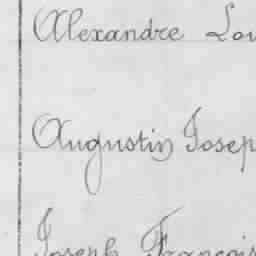 Alexandre Lou
Augustin Josep
Joseph François